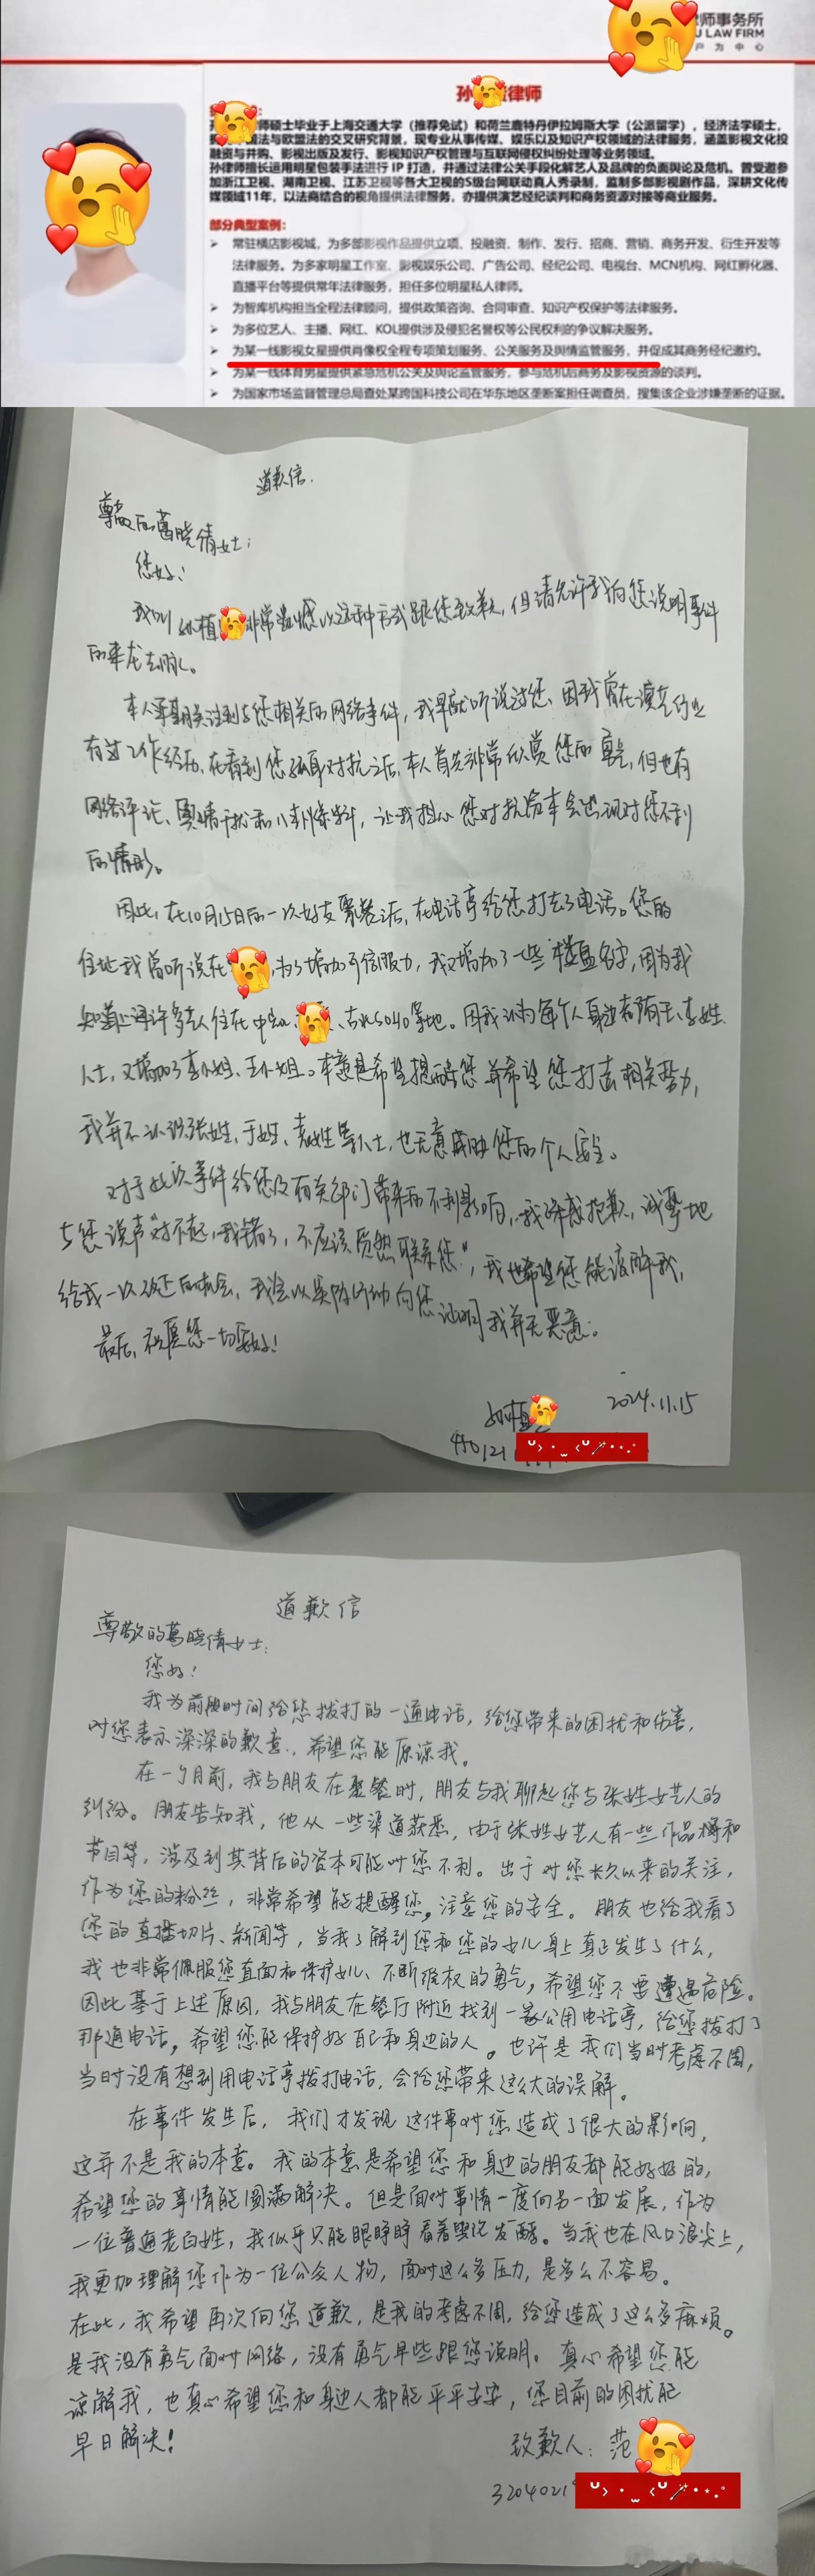 师事务所
U LAW FIRM
户 为 中 心
孙 律师
师硕士毕业于上海交通大学（推荐免试）和荷兰鹿特丹伊拉姆斯大学（公派留学），经济法学硕士，
法与欧盟法的交叉研究背景，现专业从事传媒、娱乐以及知识产权领域的法律服务，涵盖影视文化投
融资与并购、影视出版及发行、影视知识产权管理与互联网侵权纠纷处理等业务领域。
孙律师擅长运用明星包装手法进行 IP 打造，并通过法律公关手段化解艺人及品牌的负面舆论及危机。曾受邀参
加浙江卫视、湖南卫视、江苏卫视等各大卫视的S级台网联动真人秀录制，监制多部影视剧作品，深耕文化传
媒领域11年，以法商结合的视角提供法律服务，亦提供演艺经纪谈判和商务资源对接等商业服务。
部分典型案例：
常驻横店影视城，为多部影视作品提供立项、投融资、制作、发行、招商、营销、商务开发、衍生开发等
法律服务。为多家明星工作室、影视娱乐公司、广告公司、经纪公司、电视台、MCN机构、网红孵化器、
直播平台等提供常年法律服务，担任多位明星私人律师。
为智库机构担当全程法律顾问，提供政策咨询、合同审查、知识产权保护等法律服务。
为多位艺人、主播、网红、KOL提供涉及侵犯名誉权等公民权利的争议解决服务。
为某一线影视女星提供肖像权全程专项策划服务、公关服务及舆情监管服务，并促成其商务经纪邀约。
为某一线体育男星提供紧急危机公关及舆论监管服务，参与危机后商务及影视资源的谈判。
为国家市场监督管理总局查处某跨国科技公司在华东地区垄断案担任调查员，搜集该企业涉嫌垄断的证据。
道歉信.
尊敬的葛晓倩女士：
您好！
我叫孙植 非常遗憾以这种方式跟您致歉，但请允许我向您说明事件
的来龙去脉。
本人早期关注到与您相关的网络事件，我早就听说过您、因我曾在演艺行业
有过工作经历、在看到您孤身对抗之后，本人首先非常欣赏您的勇气，但也有
网络评论、舆情干扰和八卦爆料，让我担心您对抗资本会出现对您不利
的情形。
因此，在10月15日的一次好友聚餐之后，在电话亭给您打去了电话。您的
住址我曾听说在 ，为了增加可信服力，我又增加了一些楼盘名字，因为我
知道上海许多艺人住在中 、古北SOHO等地。因我认为每个人身边都有王、李姓
人士，又增加了李小姐、王小姐。本意是希望提醒您并希望您打击相关势力，
我并不认识张姓、于姓、袁姓等人士，也无意威胁您的个人安全。
对于此次事件给您及有关部门带来的不利影响，我深感抱歉，诚挚地
与您说声“对不起，我错了，不应该贸然联系您”，我也希望您能谅解我，
给我一次改正的机会，我会以实际行动向您证明我并无恶意。
最后，祝愿您一切安好！
孙植
2024.11.15
道歉信
尊敬的葛晓倩女士：
您好！
我为前段时间给您拨打的一通电话，给您带来的困扰和伤害，
对您表示深深的歉意，希望您能原谅我。
在一个月前，我与朋友在聚餐时，朋友与我聊起您与张姓女艺人的
纠纷。朋友告知我，他从一些渠道获悉，由于张姓女艺人有一些作品播和
节目等，涉及到其背后的资本可能对您不利。出于对您长久以来的关注，
作为您的粉丝，非常希望能提醒您，注意您的安全。朋友也给我看了
您的直播切片、新闻等，当我了解到您和您的女儿身上真正发生了什么，
我也非常佩服您直面和保护女儿、不断维权的勇气，希望您不要遭遇危险。
因此基于上述原因，我与朋友在餐厅附近找到一家公用电话亭，给您拨打了
那通电话，希望您能保护好自己和身边的人。也许是我们当时考虑不周，
当时没有想到用电话亭拨打电话，会给您带来这么大的误解。
在事件发生后，我们才发现这件事对您造成了很大的影响，
这并不是我的本意。我的本意是希望您和身边的朋友都能好好的，
希望您的事情能圆满解决。但是面对事情一度向另一面发展，作为
一位普通老百姓，我似乎只能眼睁睁看着舆论发酵。当我也在风口浪尖上，
我更加理解您作为一位公众人物，面对这么多压力，是多么不容易。
在此，我希望再次向您道歉，是我的考虑不周，给您造成了这么多麻烦。
是我没有勇气面对网络，没有勇气早些跟您说明。真心希望您能
谅解我，也真心希望您和身边人都能平平安安，您目前的困扰能
早日解决！
致歉人：范
3204021